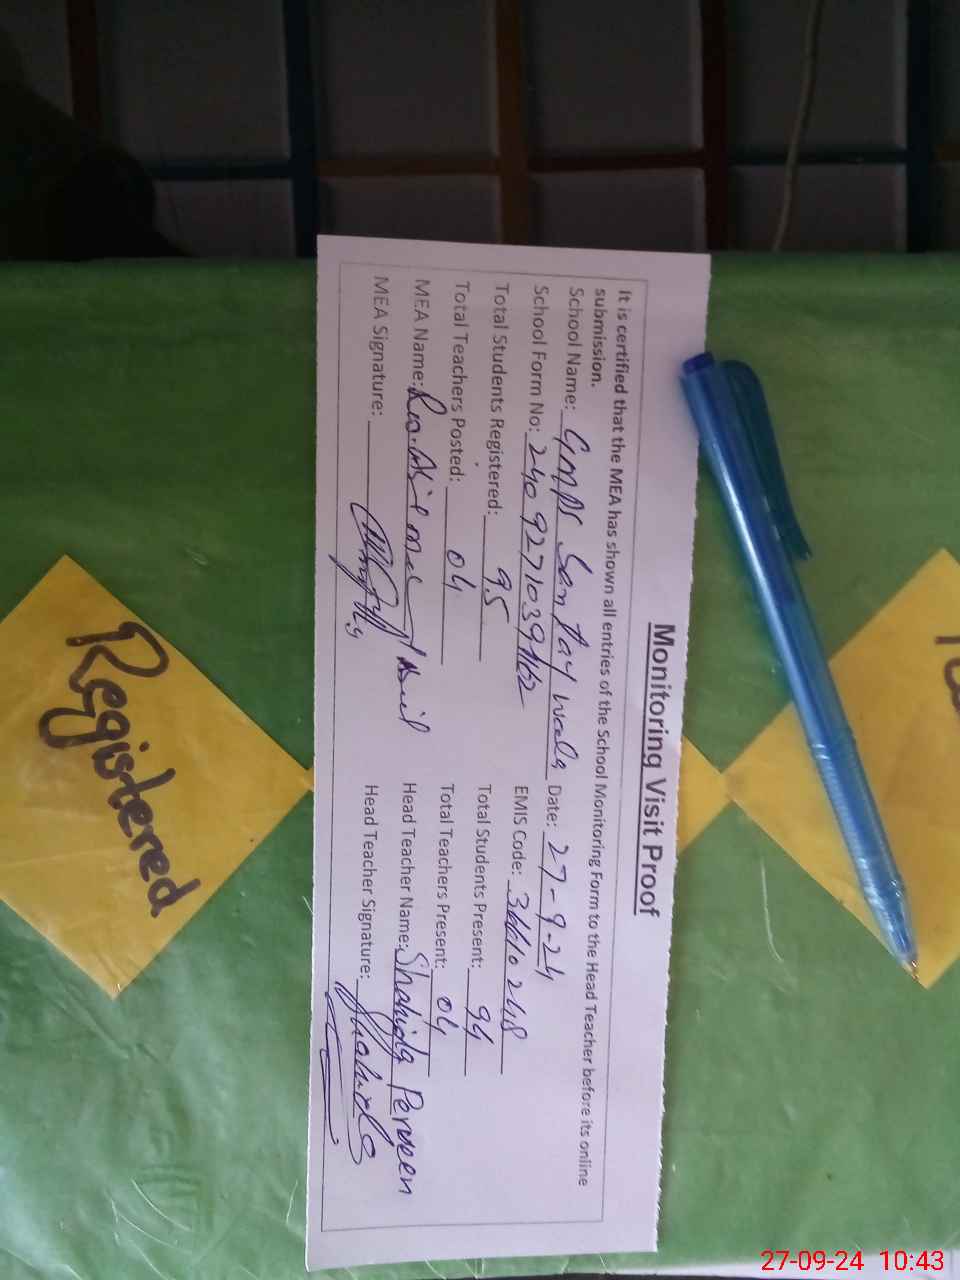 Monitoring Visit Proof
It is certified that the MEA has shown all entries of the School Monitoring Form to the Head Teacher before its online
submission.
School Name: GMPS Santay Wala Date: 27-9-24
School Form No: 2409271039462 EMIS Code:
Total Students Registered: 95 Total Students Present: 94
Total Teachers Posted: 04 Total Teachers Present: 04
MEA Name: Head Teacher Name: Shahida Perveen
MEA Signature: Head Teacher Signature:
Registered
27-09-24 10:43